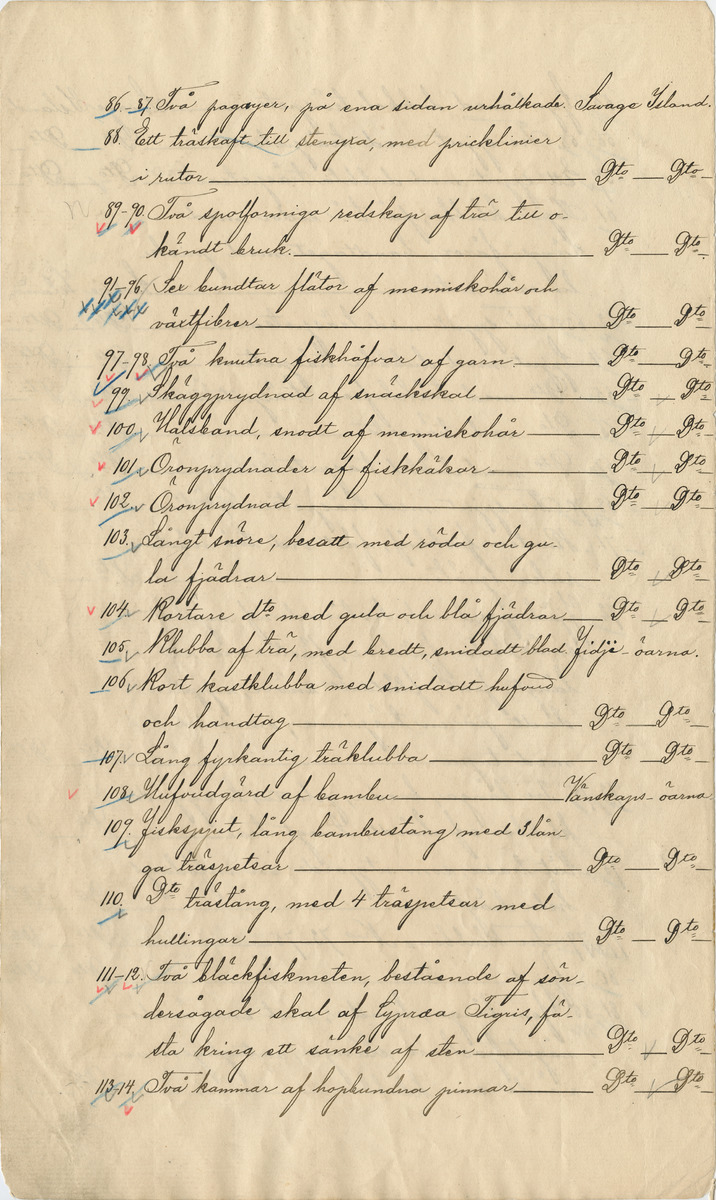 86.-87. Två pagayer, på ena sidan urhålkade. Savage Island.
88. Ett träskaft till stenyxa, med pricklinier
i rutor Dto Dto
89-90. Två spolformiga redskap af trä till o-
kändt bruk. Dto Dto
91-96. Sex bundtar flätor af menniskohår och
växtfibrer Dto Dto
97-98. Två knutna fiskhåfvar af garn. Dto Dto
99. Skäggprydnad af snäckskal Dto Dto
100. Halsband, snodt af menniskohår Dto Dto
101. Öronprydnader af fiskkäkar Dto Dto
102. Öronprydnad Dto Dto
103. Långt snöre, besatt med röda och gu-
la fjädrar Dto Dto
104. Kortare dto med gula och blå fjädrar Dto Dto
105. Klubba af trä, med bredt, snidadt blad. Fidji-öarna.
106. Kort kastklubba med snidadt hufvud
och handtag Dto Dto
107. Lång fyrkantig träklubba Dto Dto
108. Hufvudgärd af bambu Vänskaps-öarna
109. Fiskspjut, lång bambustång med 3 lån-
ga träspetsar Dto Dto
110. Dto trästång, med 4 träspetsar med
hullingar Dto Dto
111-12. Två bläckfiskmeten, bestående af sön-
dersågade skal af Cypræa Tigris, fä-
sta kring ett sänke af sten Dto Dto
113-14. Två kammar af hopbundna pinnar Dto Dto